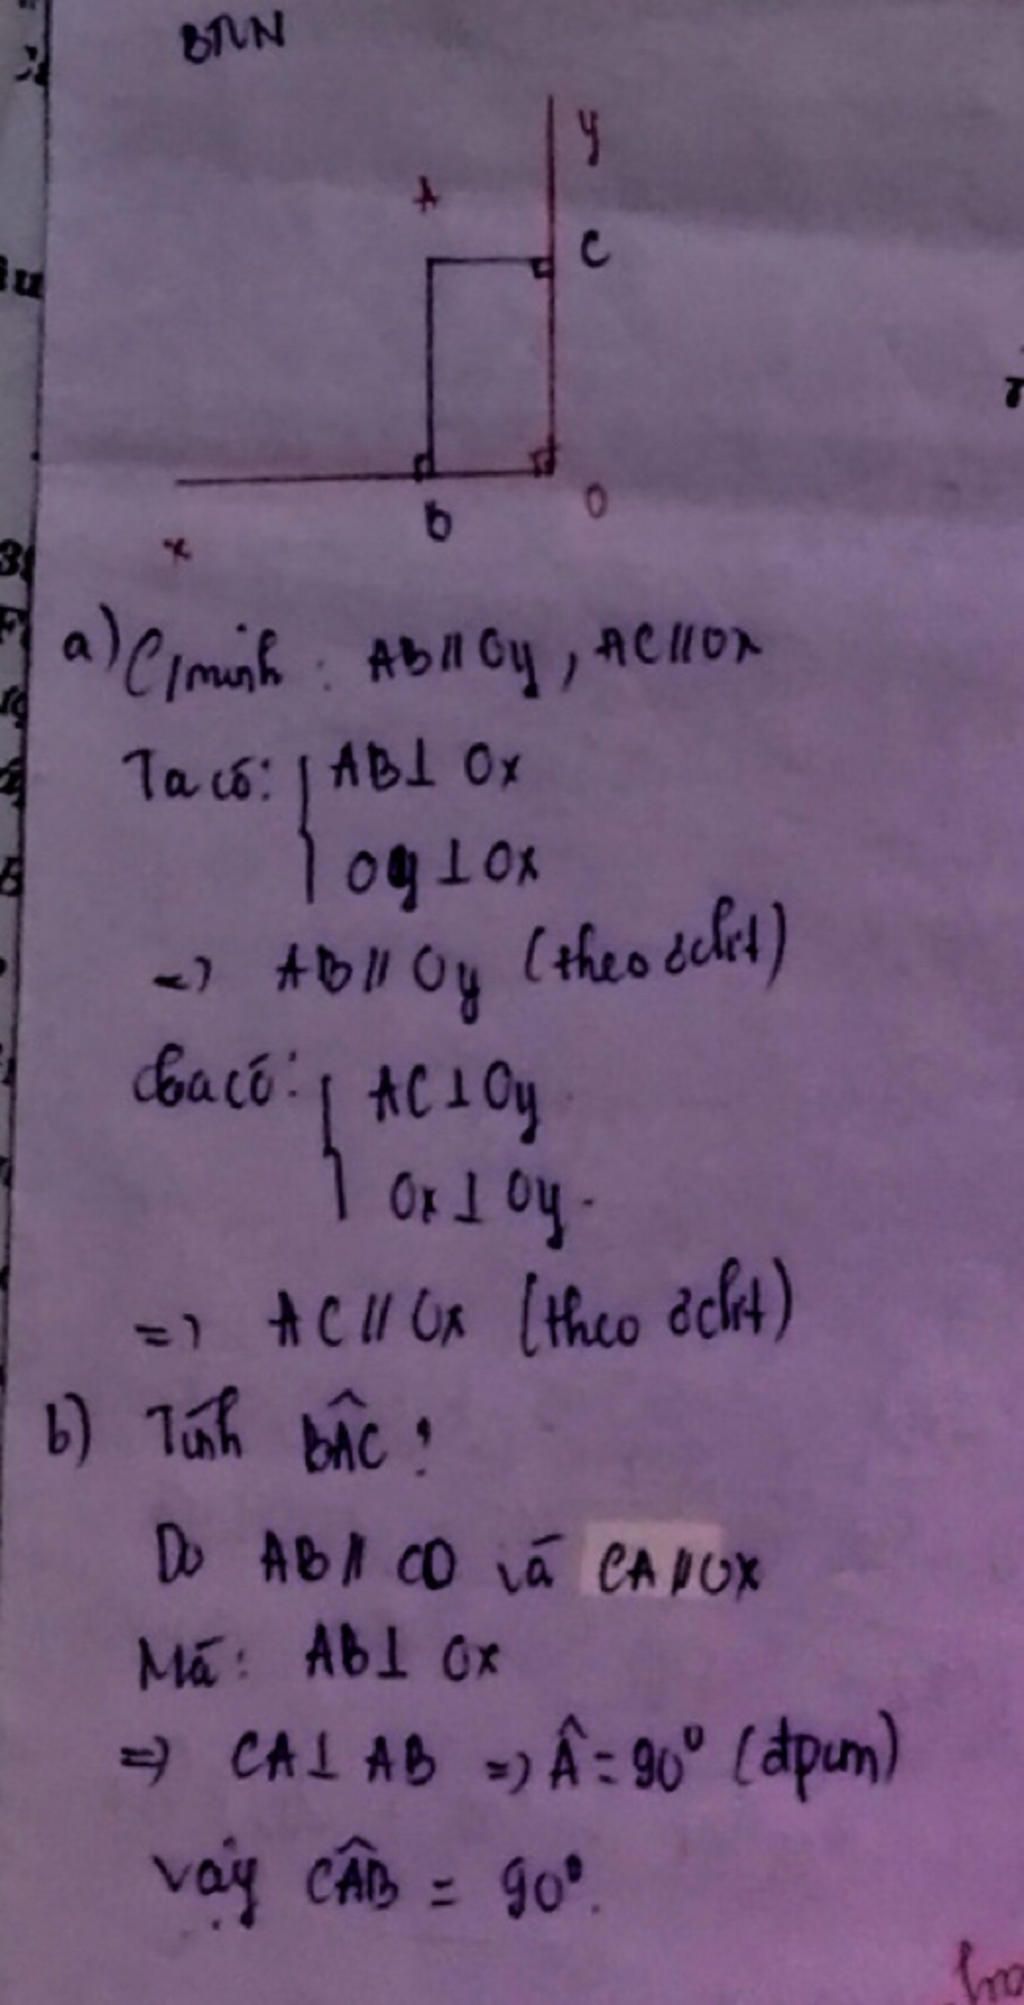 BTVN
y
A
C
B
O
x
a) C/minh : AB//Oy, AC//Ox
Ta có: { AB⊥ Ox
Oy ⊥ Ox
=> AB// Oy (theo
Ta có: { AC⊥Oy
Ox ⊥ Oy.
=> AC// Ox (theo
b) Tính BÂC ?
Do AB// CO và CA//Ox
Mà: AB⊥ Ox
=> CA⊥ AB => Â = 90° (đpcm)
Vậy CÂB = 90°.